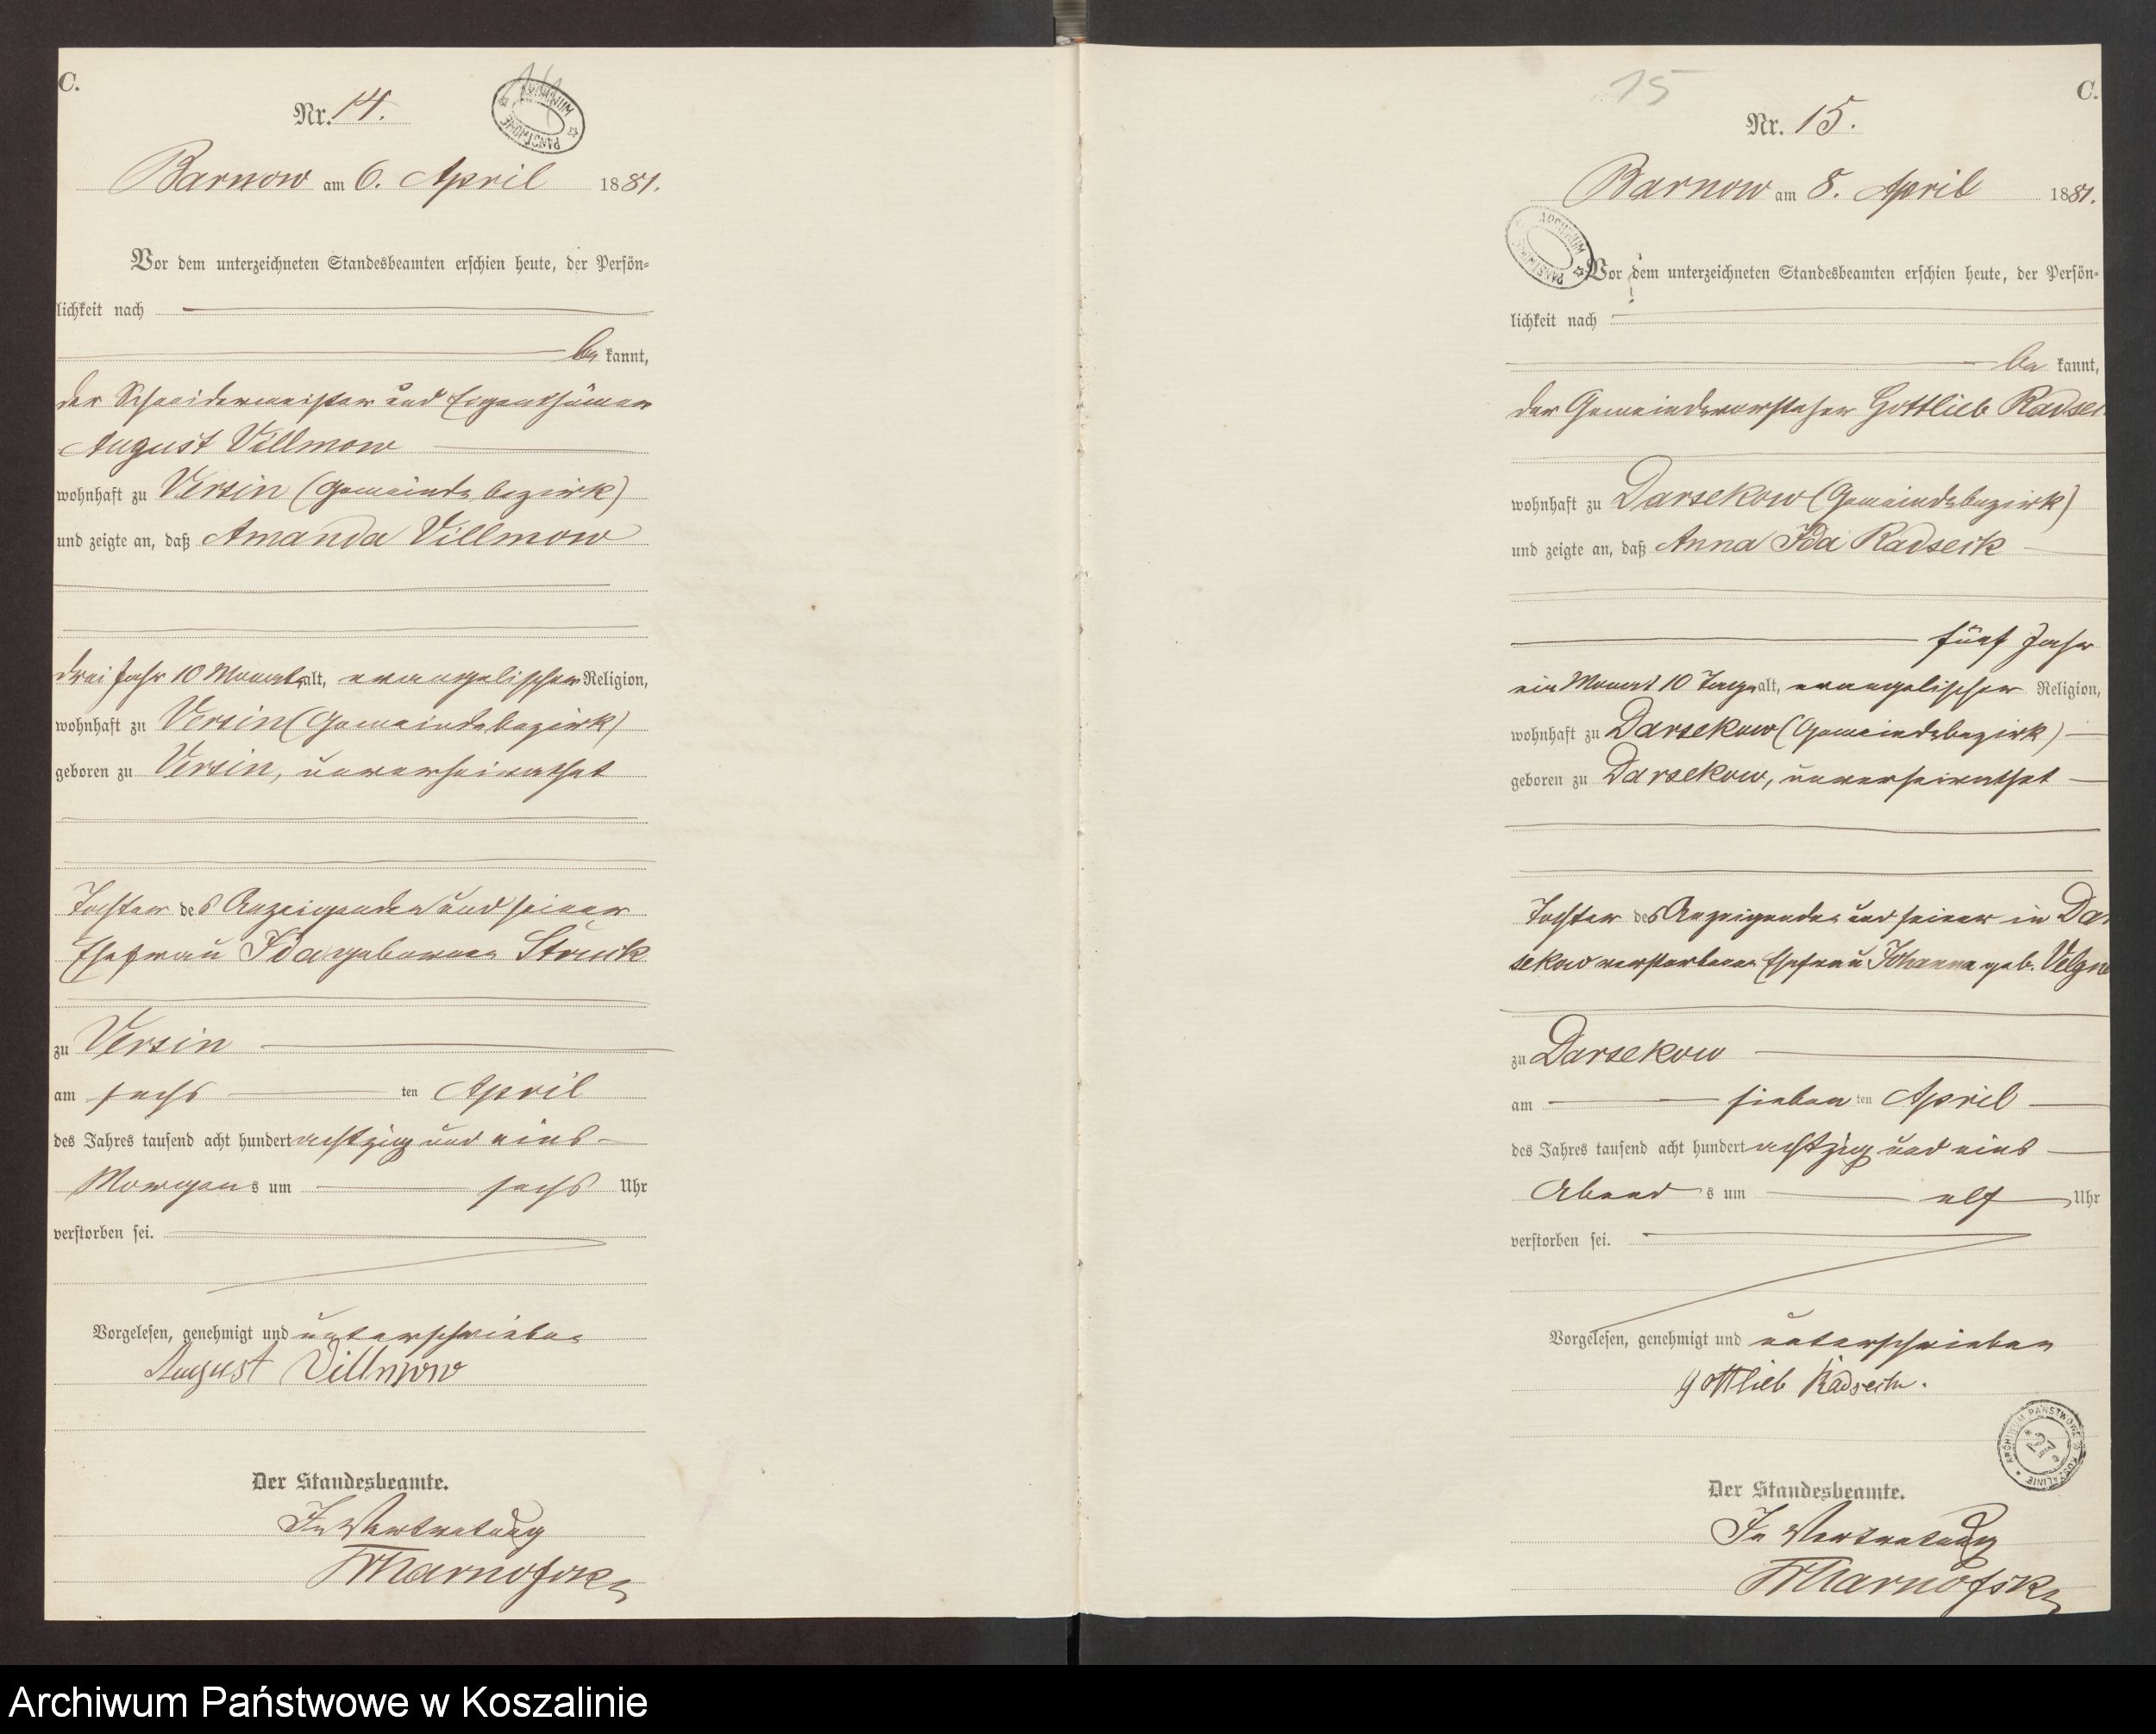 C.
14
Nr. 14.
ARCHIWUM PAŃSTWOWE
Barnow am 6. April 1881.
Vor dem unterzeichneten Standesbeamten erschien heute, der Persön-
lichkeit nach
be kannt,
der Schneidermeister und Eigenthümer
August Villmow
wohnhaft zu Versin (Gemeindebezirk)
und zeigte an, daß Amanda Villmow
drei Jahr 10 Monate alt, evangelischer Religion,
wohnhaft zu Versin (Gemeindebezirk)
geboren zu Versin, unverheirathet
Tochter des Anzeigenden und seiner
Ehefrau Ida geborenen Struck
zu Versin
am sechs ten April
des Jahres tausend acht hundert achtzig und eins
Morgens um sechs Uhr
verstorben sei.
Vorgelesen, genehmigt und unterschrieben
August Villmow
Der Standesbeamte.
In Vertretung
15
C.
Nr. 15.
Barnow am 8. April 1881.
ARCHIWUM PAŃSTWOWE
Vor dem unterzeichneten Standesbeamten erschien heute, der Persön-
lichkeit nach
be kannt,
der Gemeindevorsteher Gottlieb
wohnhaft zu Darsekow (Gemeindebezirk)
und zeigte an, daß Anna Ida Radseck
fünf Jahr
ein Monat 10 Tage alt, evangelischer Religion,
wohnhaft zu Darsekow (Gemeindebezirk)
geboren zu Darsekow, unverheirathet
Tochter des Anzeigenden und seiner in Dar
sekow verstorbenen Ehefrau Johanna geb.
zu Darsekow
am sieben ten April
des Jahres tausend acht hundert achtzig und eins
Abends um elf Uhr
verstorben sei.
Vorgelesen, genehmigt und unterschrieben
Gottlieb
ARCHIWUM PAŃSTWOWE W KOSZALINIE
27
Der Standesbeamte.
In Vertretung
Archiwum Państwowe w Koszalinie